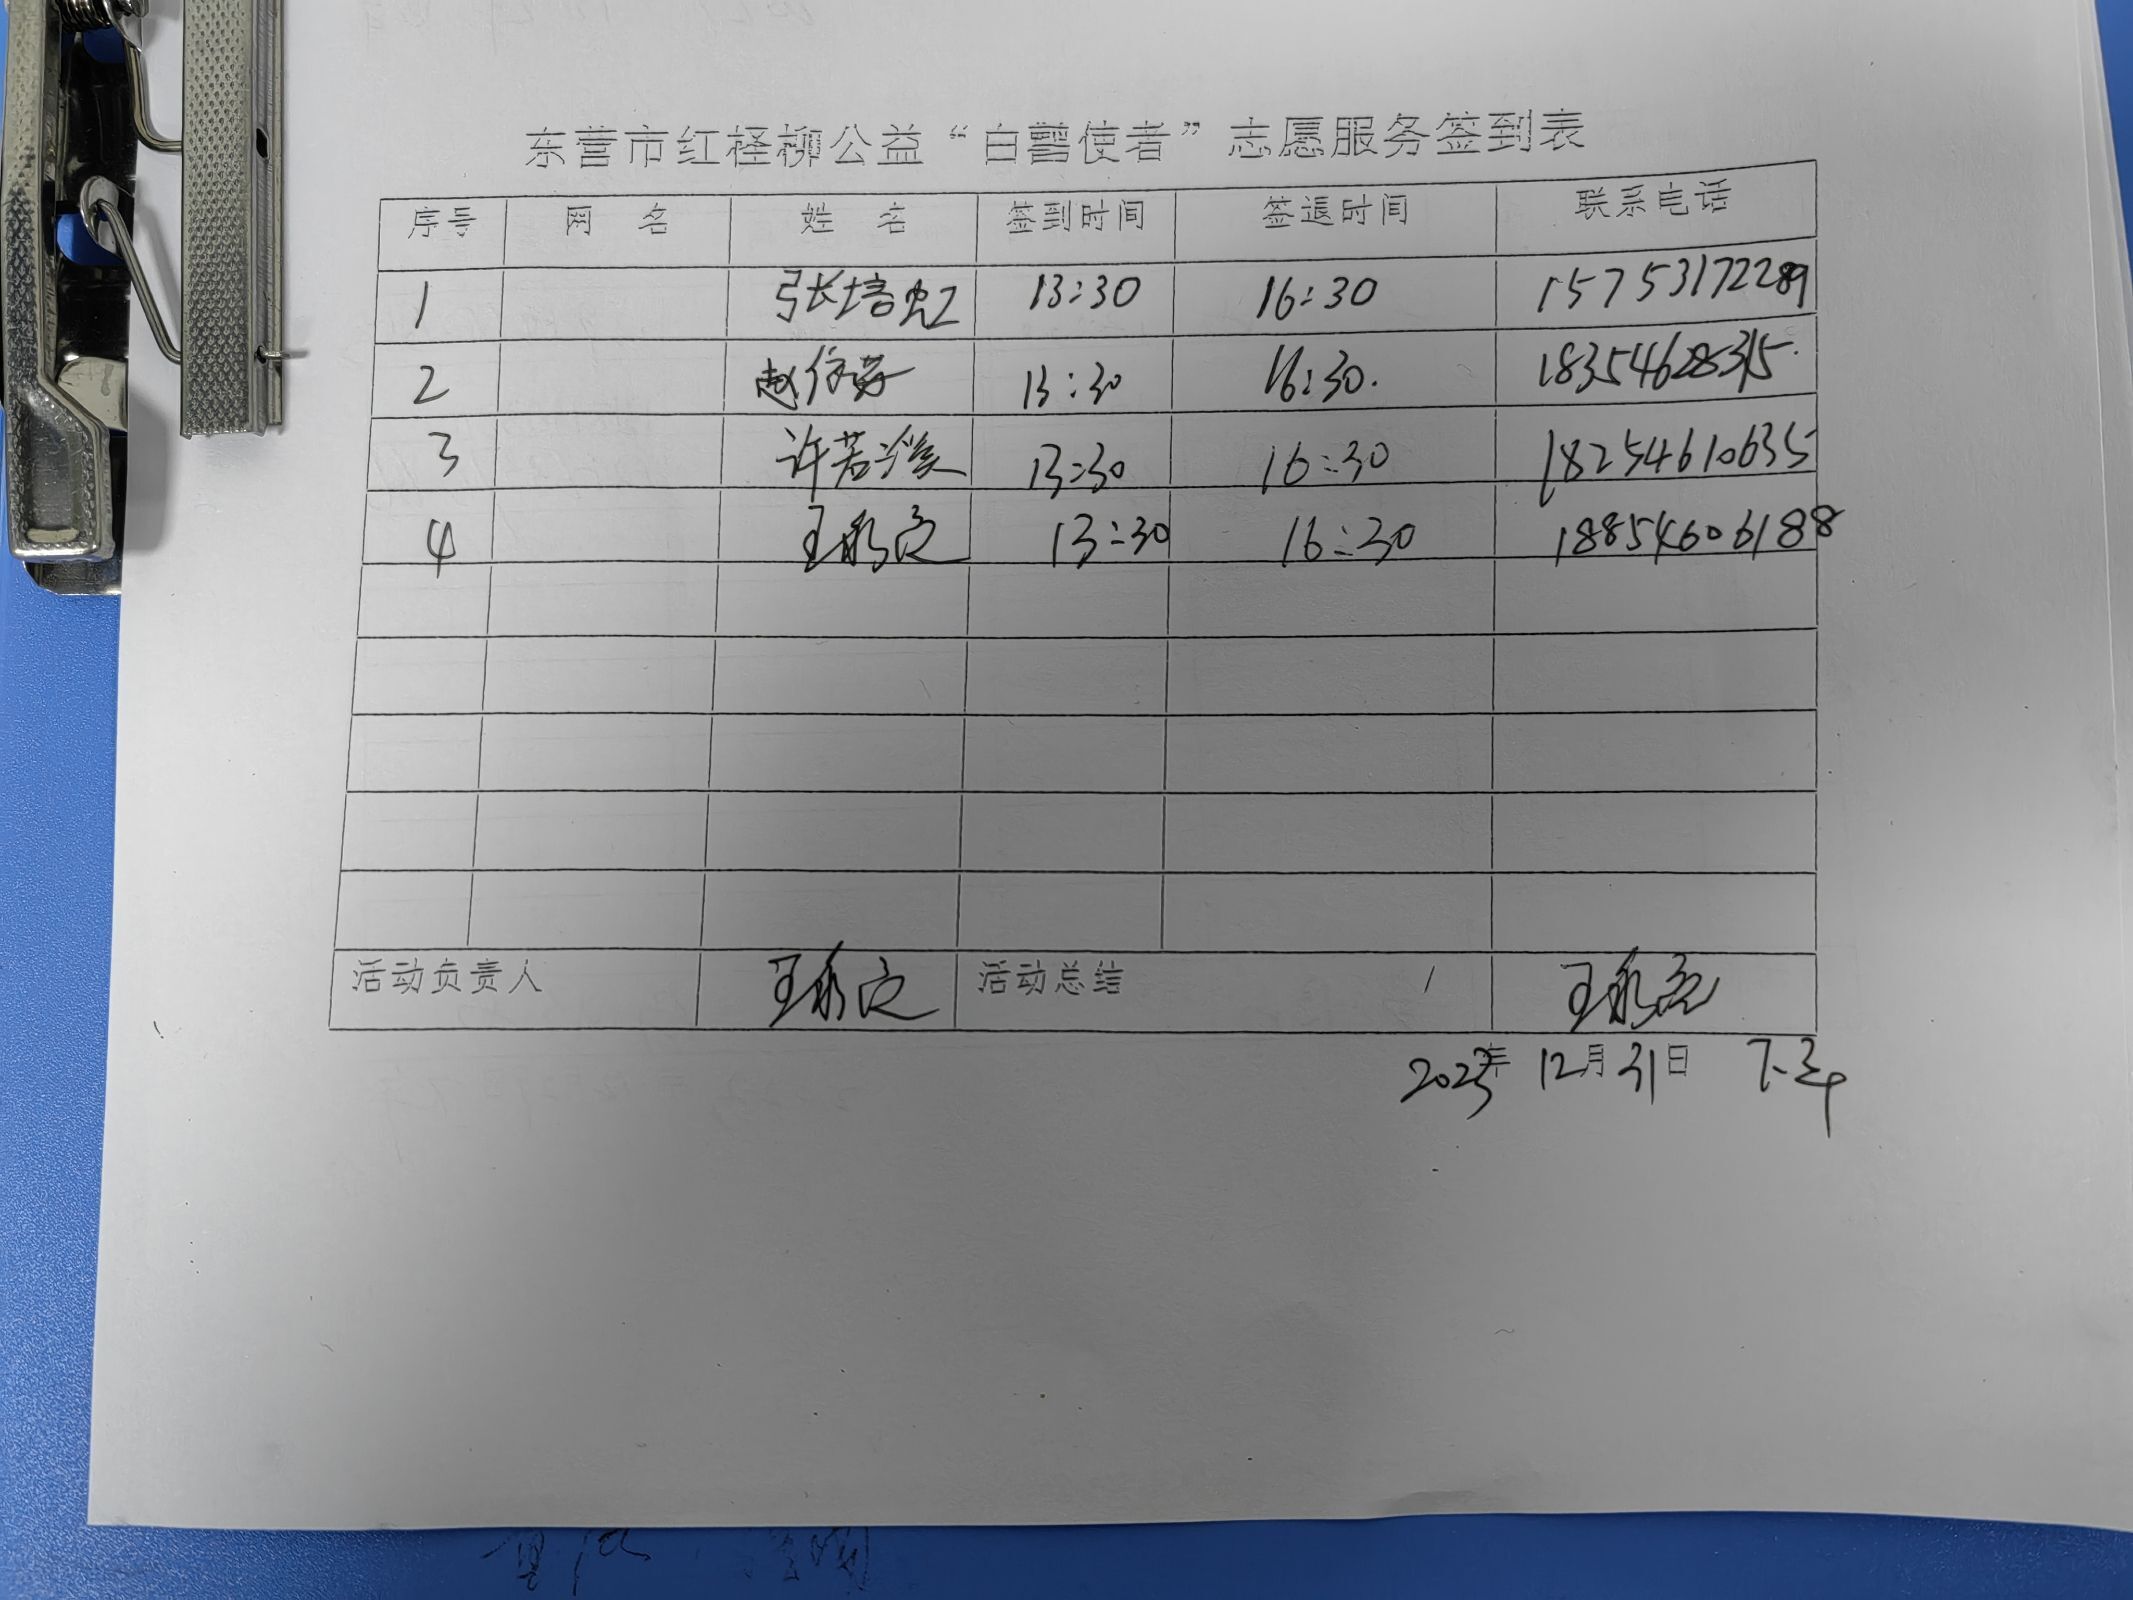 东营市红柽柳公益“白鹭使者”志愿服务签到表
序号 网 名 姓 名 签到时间 签退时间 联系电话
1 张培虹 13:30 16:30 15753172289
2 赵 13:30 16:30. 18354628315.
3 许若 13:30 16:30 18254610635
4 王 13:30 16:30 18854606188
活动负责人 王 活动总结 王
2023年 12月31日 下午